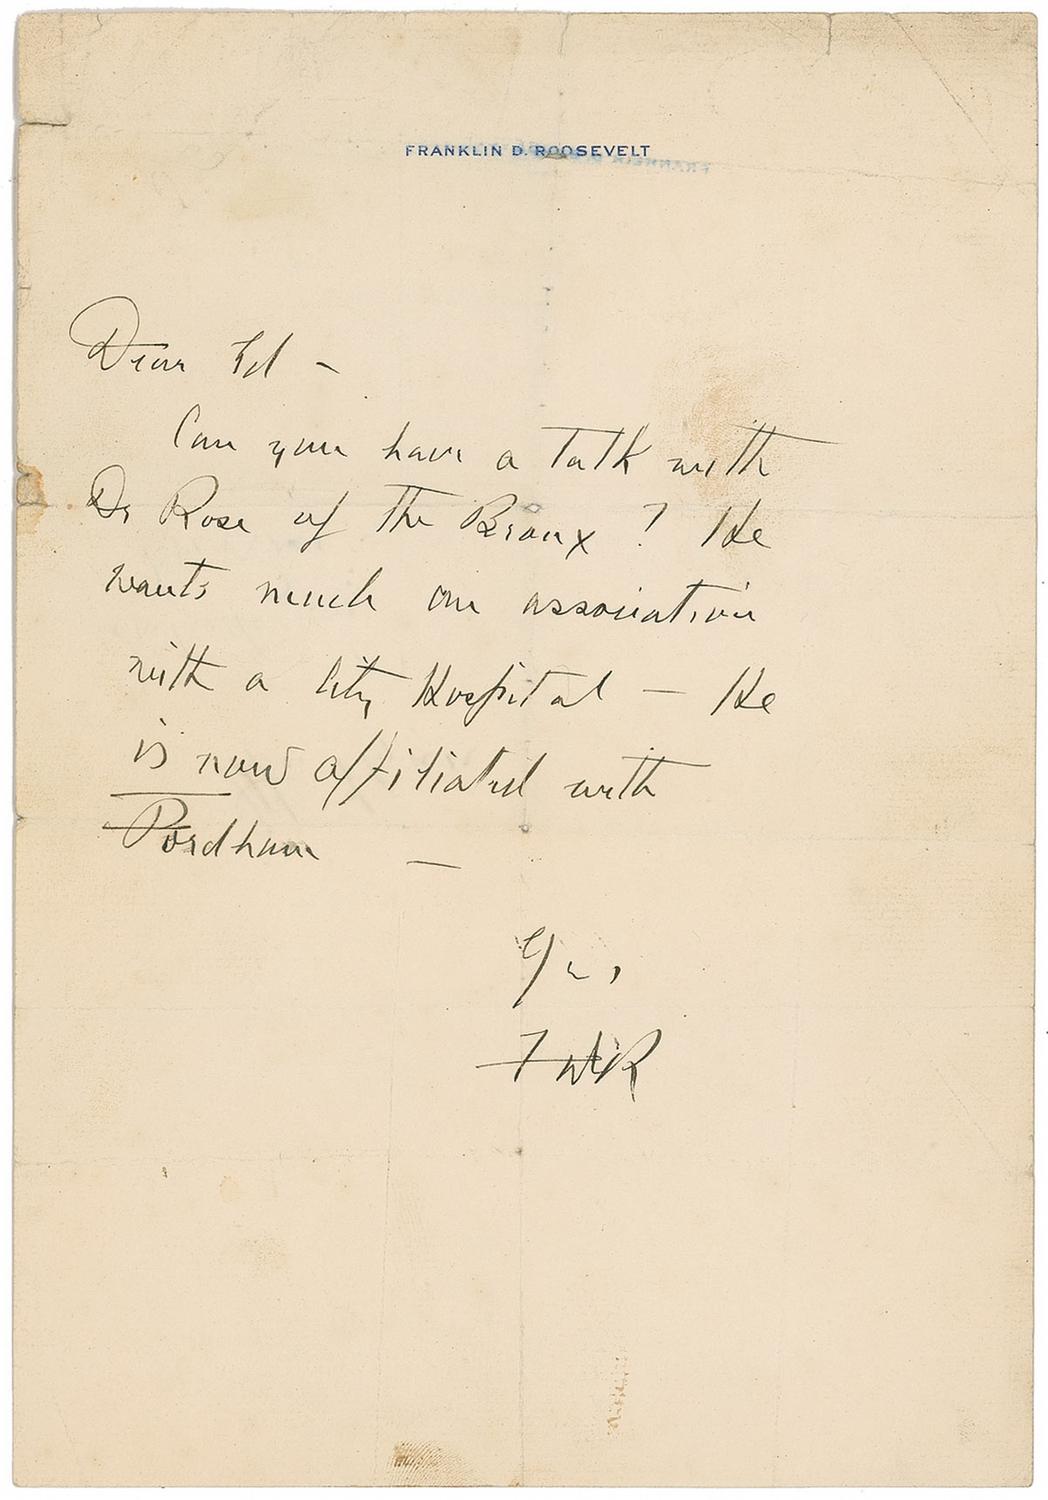 FRANKLIN D. ROOSEVELT
Dear Ed –
Can you have a talk with
Dr Rose of the Bronx? He
wants much an association
with a City Hospital – He
is now affiliated with
Fordham –
Yrs,
FDR